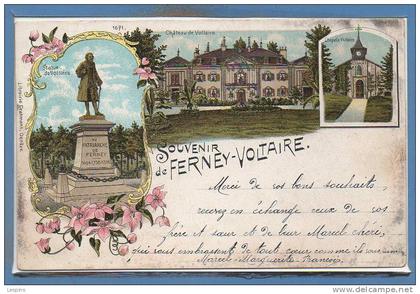 1671.
Statue
de Voltaire
Château de Voltaire
Chapelle Voltaire
AU
PATRIARCHE
DE
FERNEY
SOUVENIR
de FERNEY-VOLTAIRE.
Merci de vos bons souhaits,
recevez en échange ceux de vos
père et sœur et de leur Marcel chéri,
qui vous embrassent de tout cœur comme ils vous
Marcel - Marguerite - François.